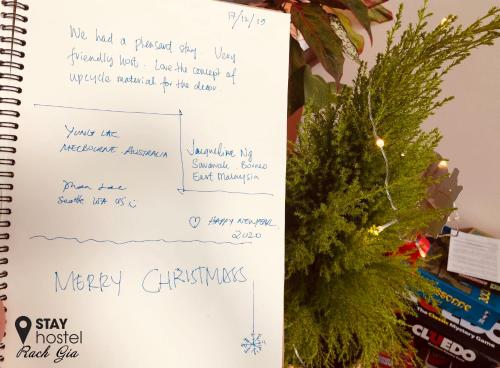 17/12/19
We had a pleasant stay. Very
friendly host. Love the concept of
upcycle material for the decor.
YUNG LAE
MELBOURNE AUSTRALIA
Jacqueline Ng
Sarawak Borneo
East Malaysia
Lae
Seattle WA US
♡ HAPPY NEW YEAR
2020
MERRY CHRISTMASS
STAY
hostel
Rach Gia
The Classic Mystery Game
CLUEDO